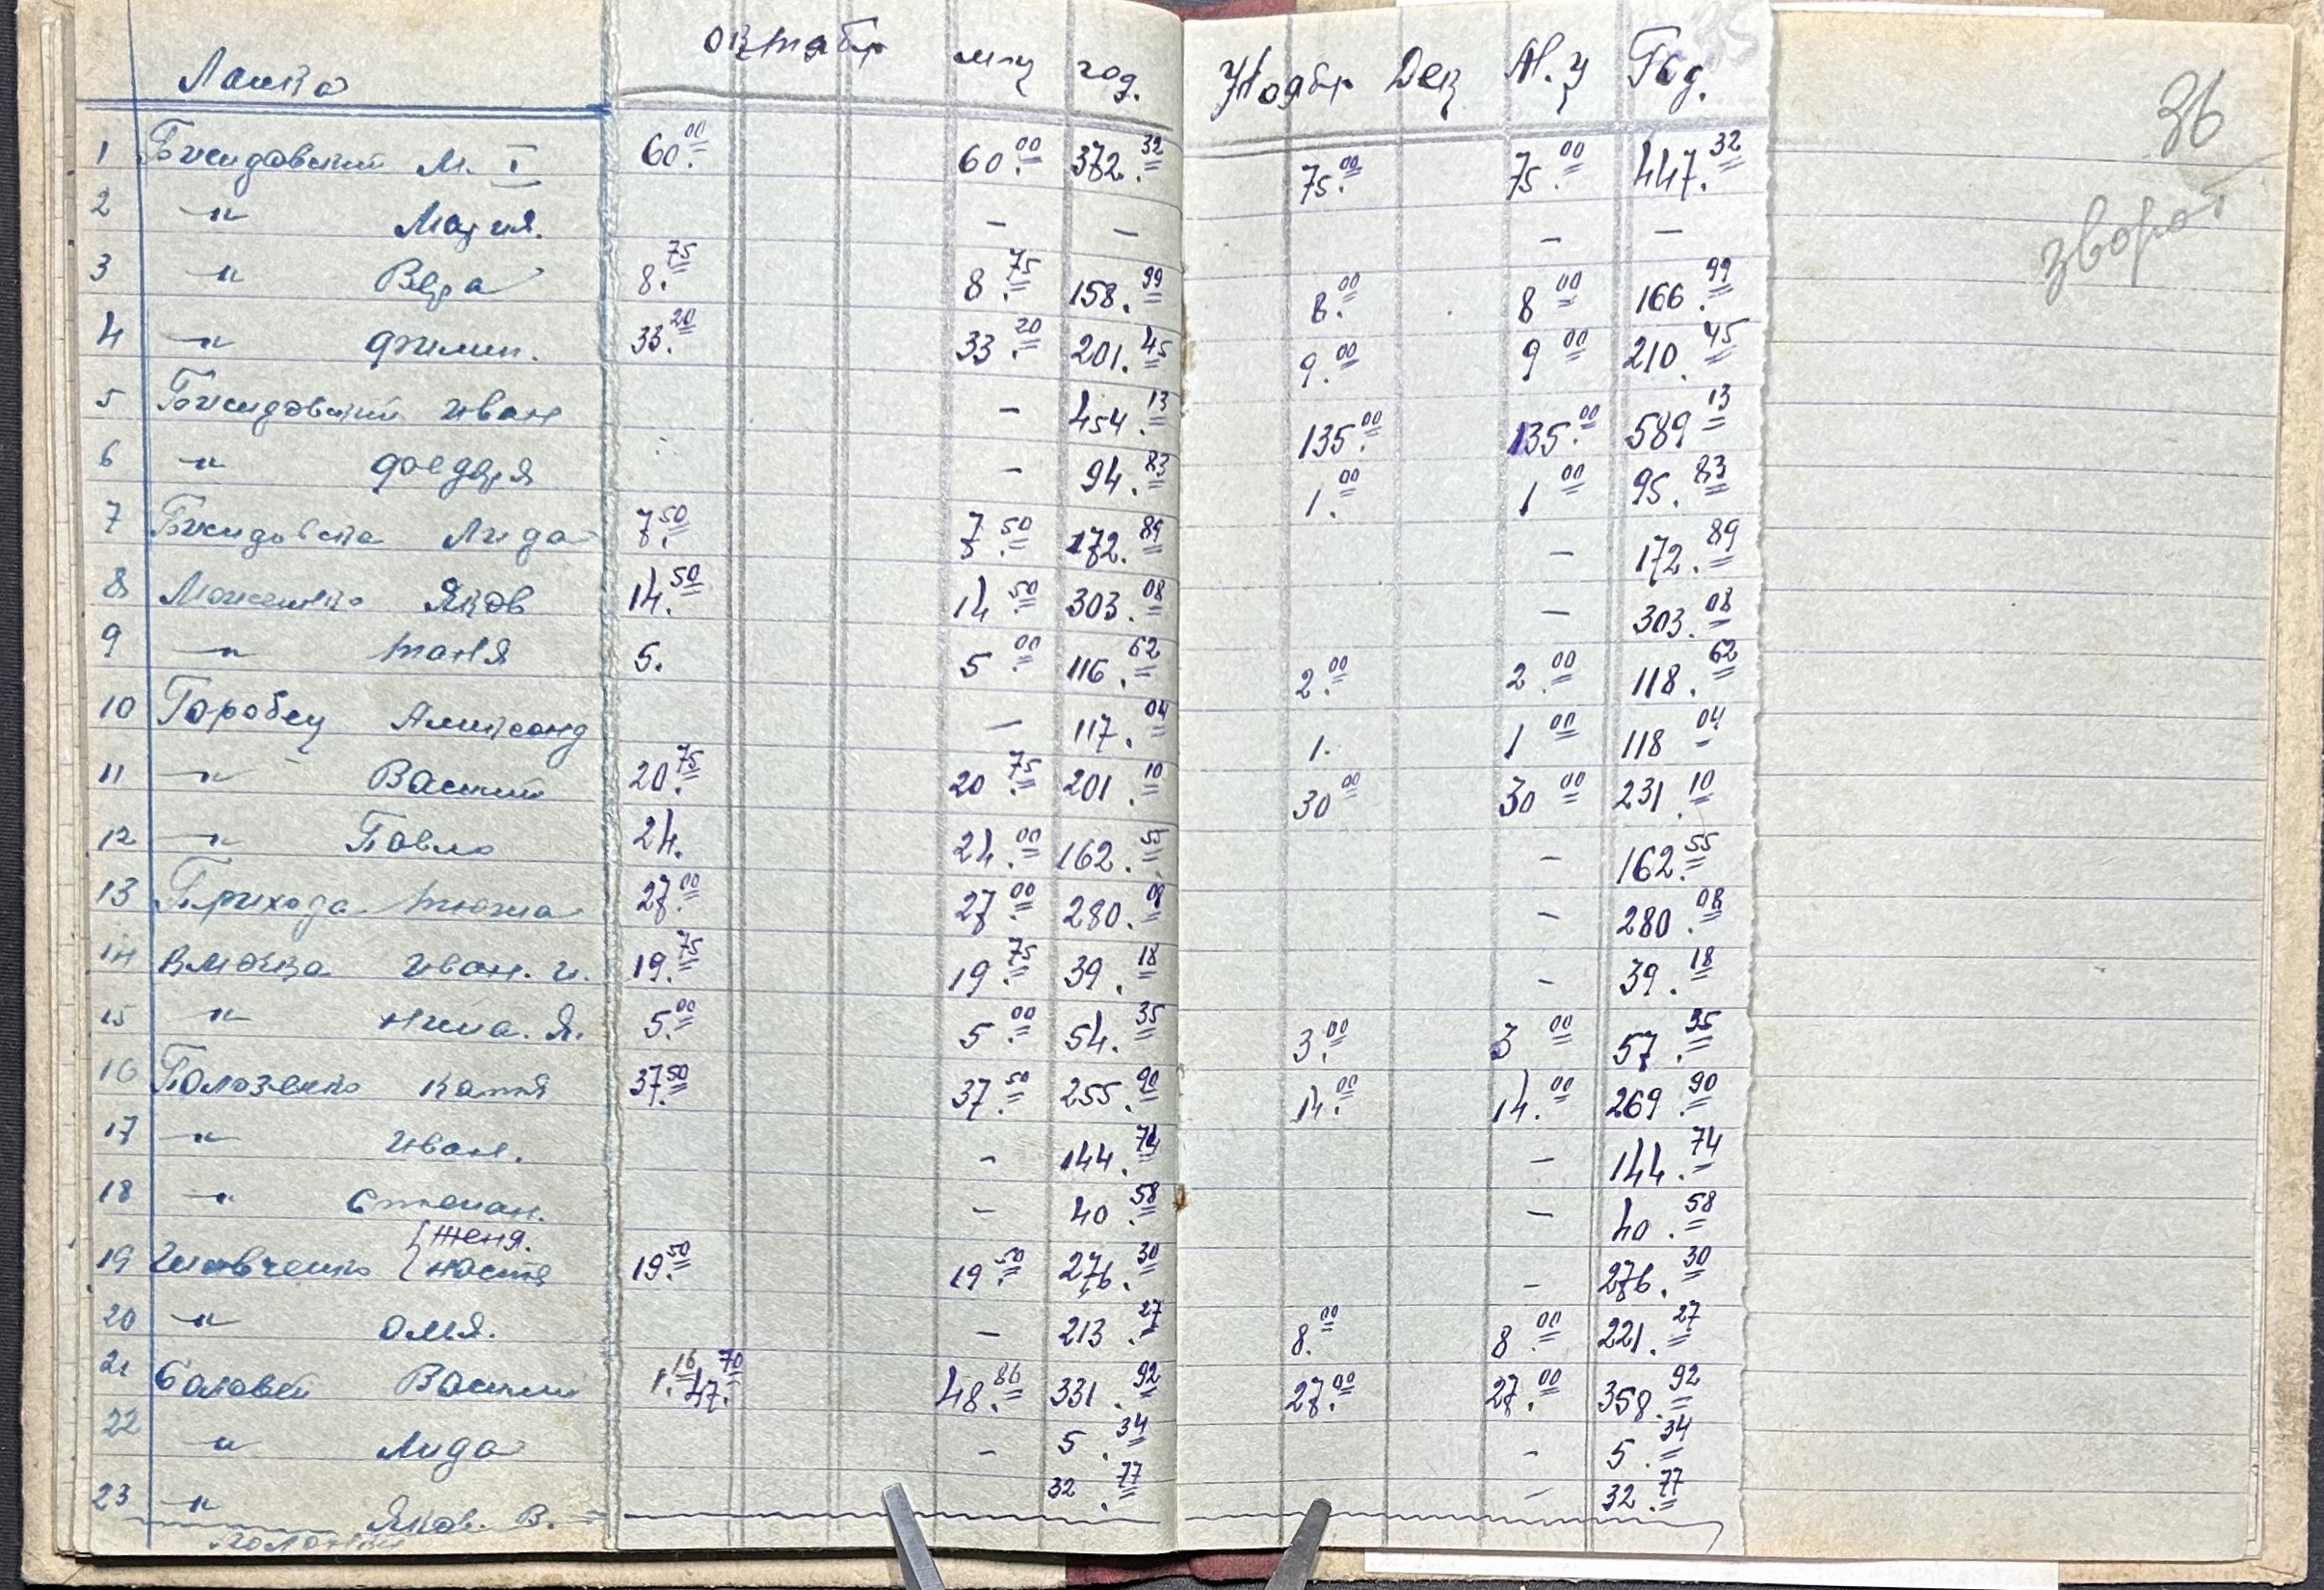 Ланка октябр м-ц год. Ноябр Дек М.ц Год.
36
зворот
1 М. I 60.00 60.00 372.32 75.00 75.00 447.32
2 -"- Мария. - - - -
3 -"- Вера 8.75 8.75 158.99 8.00 8.00 166.99
4 -"- Филип. 33.20 33.20 201.45 9.00 9.00 210.45
5 Иван - 454.13 135.00 135.00 589.13
6 -"- - 94.83 1.00 1.00 95.83
7 Лида 7.50 7.50 172.89 - 172.89
8 Яков 14.50 14.50 303.08 - 303.08
9 -"- Таня 5. 5.00 116.62 2.00 2.00 118.62
10 Горобец Аликсанд - 117.04 1. 1.00 118.04
11 -"- Василий 20.75 20.75 201.10 30.00 30.00 231.10
12 -"- Павло 24. 24.00 162.55 - 162.55
13 Прихода 27.00 27.00 280.08 - 280.08
14 Иван. И. 19.75 19.75 39.18 - 39.18
15 -"- Нина. Я. 5.00 5.00 54.35 3.00 3.00 57.35
16 Полозенко Катя 37.50 37.50 255.90 14.00 14.00 269.90
17 -"- Иван. - 144.74 - 144.74
18 -"- Степан. - 40.58 - 40.58
Женя.
19 Шевченко Настя 19.50 19.50 276.30 - 276.30
20 -"- Оля. - 213.27 8.00 8.00 221.27
21 Соловей Василий 1.16 47.70 48.86 331.92 27.00 27.00 358.92
22 -"- Лида - 5.34 - 5.34
23 -"- Яков. В. 32.77 - 32.77